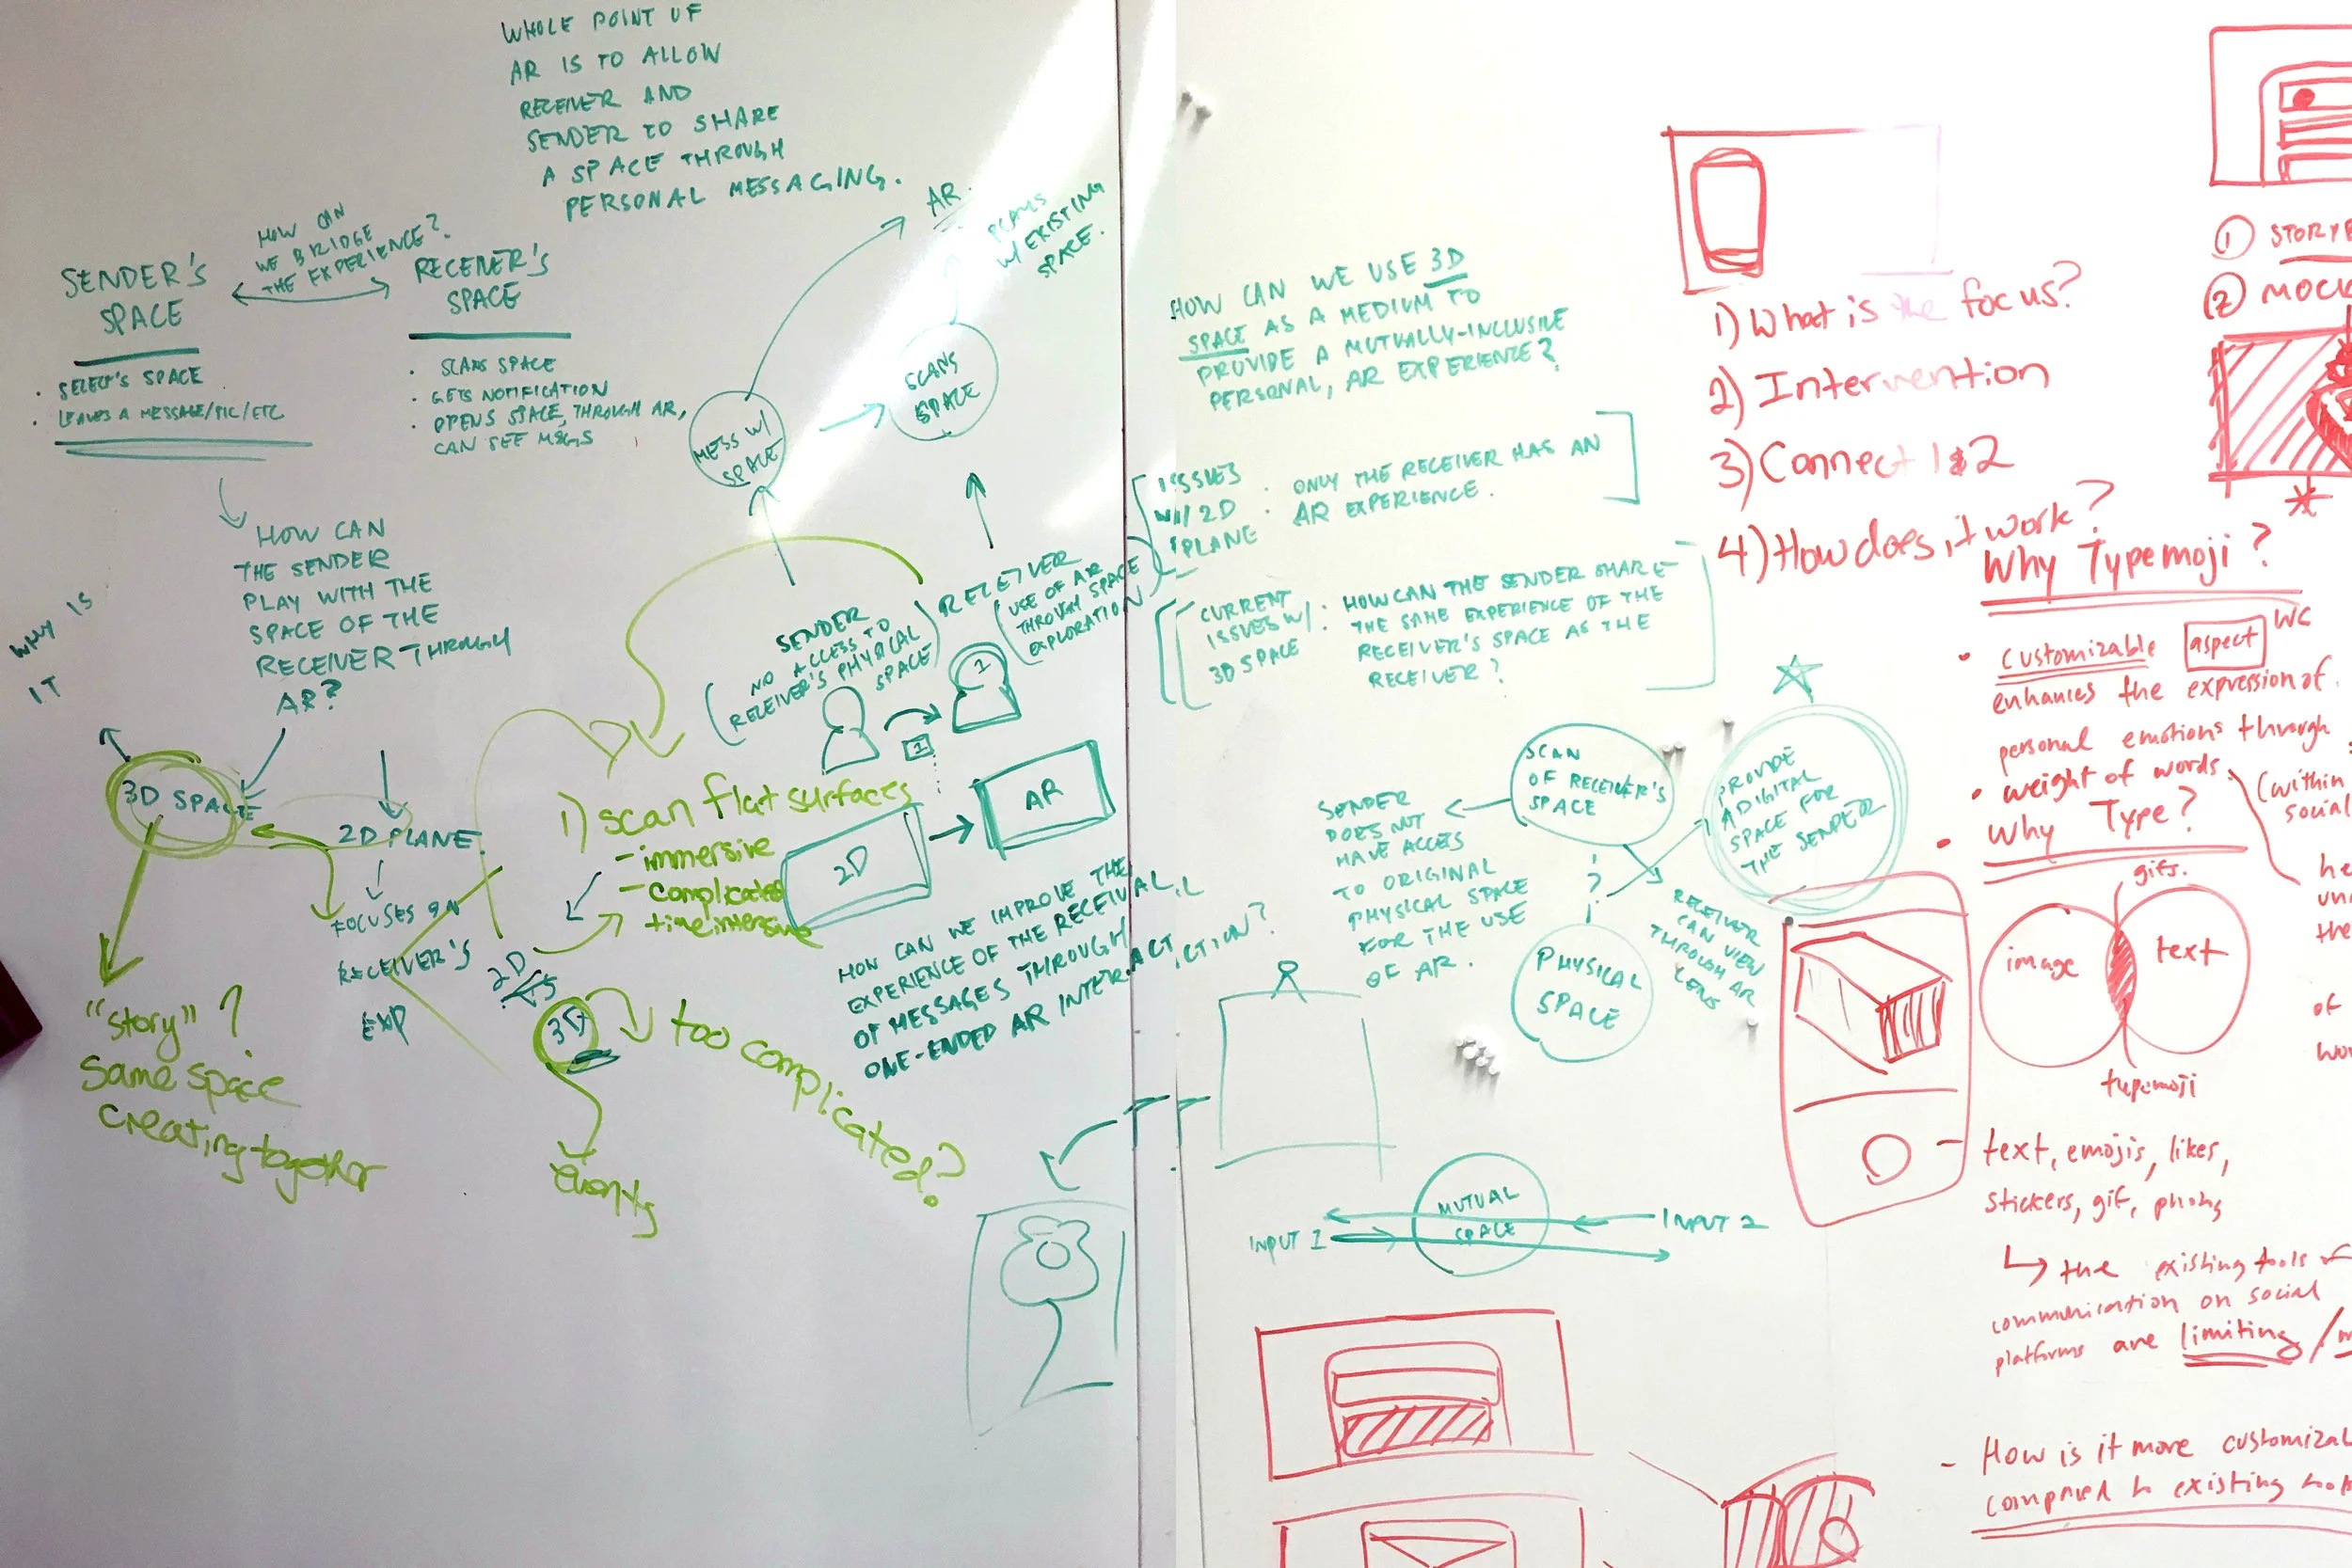 WHOLE POINT OF
AR IS TO ALLOW
RECEIVER AND
SENDER TO SHARE
A SPACE THROUGH
PERSONAL MESSAGING.
HOW CAN
WE BRIDGE
THE EXPERIENCE?
SENDER'S
SPACE
SELECT'S SPACE
LEAVES A MESSAGE/PIC/ETC
RECEIVER'S
SPACE
SCANS SPACE
GETS NOTIFICATION
OPENS SPACE, THROUGH AR,
CAN SEE MSGS
HOW CAN
THE SENDER
PLAY WITH THE
SPACE OF THE
RECEIVER THROUGH
AR?
WHY IS
IT
3D SPACE
2D PLANE
FOCUSES ON
RECEIVER'S
EXP
"story"?
Same space
creating together
AR.
W/ EXISTING
SPACE.
MESS W/
SPACE
SCANS
SPACE
SENDER
(NO ACCESS TO
RECEIVER'S PHYSICAL
SPACE)
RECEIVER
(USE OF AR
THROUGH SPACE
EXPLORATION)
1
1
1) scan flat surfaces
- immersive
- complicated
time intensive
2D
AR
2D
VS
3D
too complicated?
HOW CAN WE IMPROVE THE
EXPERIENCE OF THE RECEIVAL
OF MESSAGES THROUGH
ONE-ENDED AR INTERACTION?
HOW CAN WE USE 3D
SPACE AS A MEDIUM TO
PROVIDE A MUTUALLY-INCLUSIVE
PERSONAL, AR EXPERIENCE?
ISSUES
W/ 2D
PLANE
: ONLY THE RECEIVER HAS AN
AR EXPERIENCE.
CURRENT
ISSUES W/
3D SPACE
: HOW CAN THE SENDER SHARE
THE SAME EXPERIENCE OF THE
RECEIVER'S SPACE AS THE
RECEIVER?
SCAN
OF RECEIVER'S
SPACE
PROVIDE
A DIGITAL
SPACE FOR
THE SENDER
SENDER
DOES NOT
HAVE ACCESS
TO ORIGINAL
PHYSICAL SPACE
FOR THE USE
OF AR.
?
PHYSICAL
SPACE
RECEIVER
CAN VIEW
THROUGH AR
LENS
INPUT 1
MUTUAL
SPACE
INPUT 2
1) What is the focus?
2) Intervention
3) Connect 1&2
4) How does it work?
① STORYB
② MOCK
Why Typemoji?
• customizable aspect WC
enhances the expression of
personal emotions through
• weight of words
(within
social
• Why Type?
gifs.
image
text
typemoji
he
un
the
of
wor
- text, emojis, likes,
stickers, gif, photos
↳ the existing tools
communication on social
platforms are limiting /
- How is it more customizab
compared to existing tools